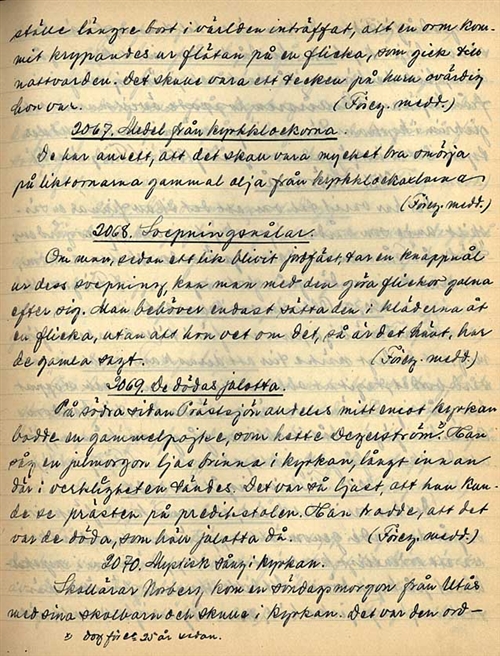 ställe längre bort i världen inträffat, att en orm kom-
mit krypandes ur flätan på en flicka, som gick till
nattvarden. Det skulle vara ett tecken på huru ovärdig
hon var. (Föreg. medd.)
2067. Medel från kyrkklockorna.
De har ansett, att det skall vara mycket bra smörja
på liktornarna gammal olja från kyrkklockaxlarna
(Föreg. medd.)
2068. Svepningsnålar.
Om man, sedan ett lik blivit jordfäst, tar en knappnål
ur dess svepning, kan man med den göra flickor galna
efter sig. Man behöver endast sätta den i kläderna åt
en flicka, utan att hon vet om det, så är det klart, har
de gamla sagt. (Föreg. medd.)
2069. De dödas julotta.
På södra sidan Prästsjön alldeles mitt emot kyrkan
bodde en gammelpojke, som hette Degerström. x Han
såg en julmorgon ljus brinna i kyrkan, långt innan
där i verkligheten tändes. Det var så ljust, att han kun-
de se prästen på predikstolen. Han trodde, att det
var de döda, som höll julotta då. (Föreg. medd.)
2070. Mystisk sång i kyrkan.
Skollärar Norberg kom en söndagsmorgon från Utås
med sina skolbarn och skulle i kyrkan. Det var den ord-
x dog för c:a 25 år sedan.